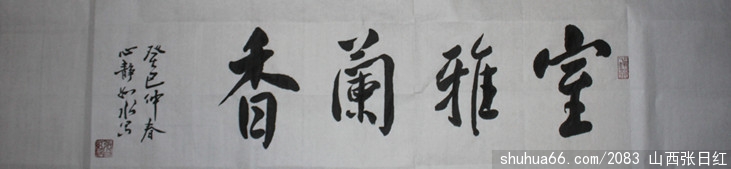 室雅蘭香
癸巳仲春
心静如水
shuhua66.com/2083 山西张日红